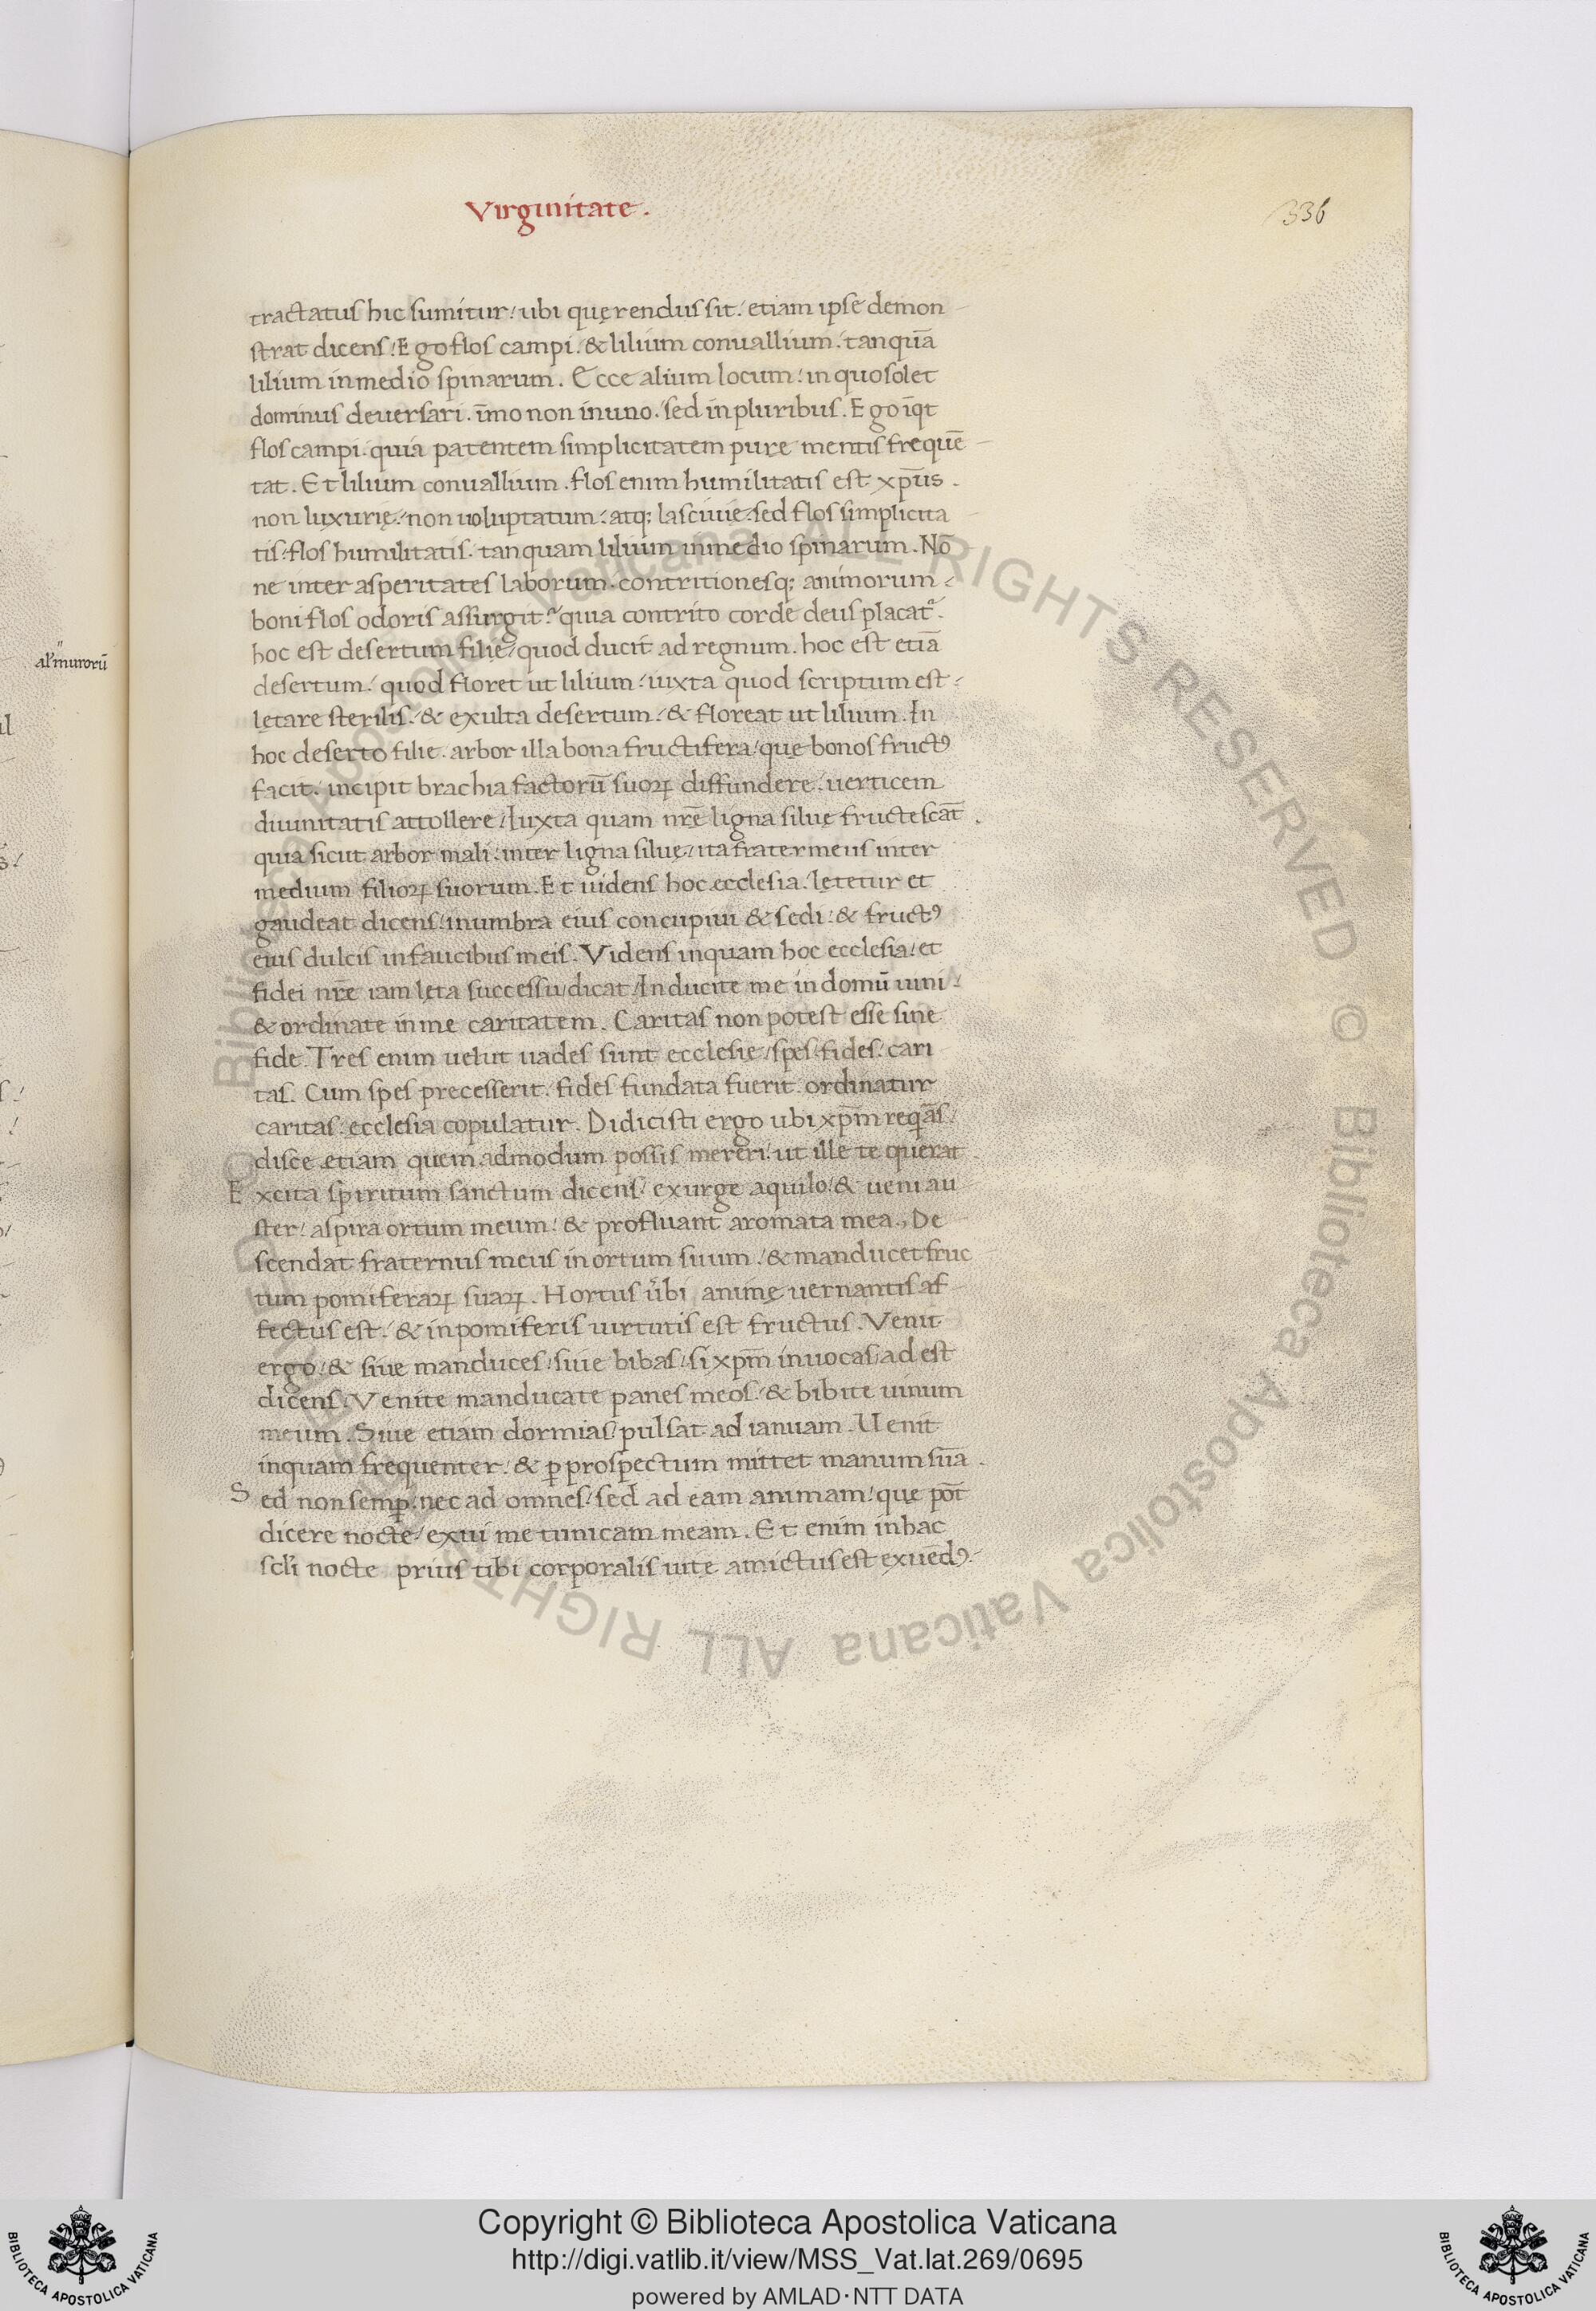 Virginitate.
336
tractatus hic sumitur: ubi quęrendus sit. etiam ipse demon
strat dicens: Ego flos campi. & lilium conuallium. tanquā
lilium in medio spinarum. Ecce alium locum: in quo solet
dominus deuersari. īmo non in uno. sed in pluribus. Ego īqt
flos campi. quia patentem simplicitatem purę mentis frequē
tat. Et lilium conuallium. flos enim humilitatis est xp̄us.
non luxurię. non uoluptatum. atq; lasciuie. sed flos simplicita
tis. flos humilitatis. tanquam lilium in medio spinarum. Nō
ne inter asperitates laborum. contritionesq; animorum
boni flos odoris assurgit. quia contrito corde deus placat̄.
hoc est desertum filię. quod ducit ad regnum. hoc est etiā
al' murorū
desertum. quod floret ut lilium. iuxta quod scriptum est.
lętare sterilis. & exulta desertum. & floreat ut lilium. In
hoc deserto filie. arbor illa bona fructifera. quę bonos fructꝰ
facit. incipit brachia factorū suoꝝ diffundere. uerticem
diuinitatis attollere. Iuxta quam nr̄ę ligna siluę fructescāt.
quia sicut arbor mali. inter ligna siluę. ita frater meus inter
medium filioꝝ suorum. Et uidens hoc ecclesia. lętetur et
gaudeat dicens: in umbra eius concupiui & sedi: & fructꝰ
eius dulcis in faucibus meis. Videns inquam hoc ecclesia: et
fidei nr̄e iam lęta successu. dicat. Inducite me in domū uini.
& ordinate in me caritatem. Caritas non potest esse sine
fide. Tres enim uelut uades sunt ecclesię. spes. fides. cari
tas. Cum spes precesserit. fides fundata fuerit. ordinatur
caritas. ecclesia copulatur. Didicisti ergo ubi xp̄m reqras.
disce etiam quem admodum possis mereri. ut ille te querat.
Excita spiritum sanctum dicens. exurge aquilo. & ueni au
ster. aspira ortum meum. & profluant aromata mea. De
scendat fraternus meus in ortum suum. & manducet fruc
tum pomiferaꝝ suaꝝ. Hortus ubi animę uernantis af
fectus est. & in pomiferis uirtutis est fructus. Venit
ergo. & siue manduces. siue bibas. si xp̄m inuocas. adest
dicens. Venite manducate panes meos. & bibite uinum
meum. Siue etiam dormias. pulsat ad ianuam. Uenit
inquam frequenter. & ꝑ prospectum mittet manum suā.
Sed non semꝑ. nec ad omnes. sed ad eam animam. quę pōt
dicere nocte. exui me tunicam meam. Et enim in hac
scl̄i nocte prius tibi corporalis uitę amictus est exuēdꝰ.
Copyright © Biblioteca Apostolica Vaticana
http://digi.vatlib.it/view/MSS_Vat.lat.269/0695
powered by AMLAD·NTT DATA